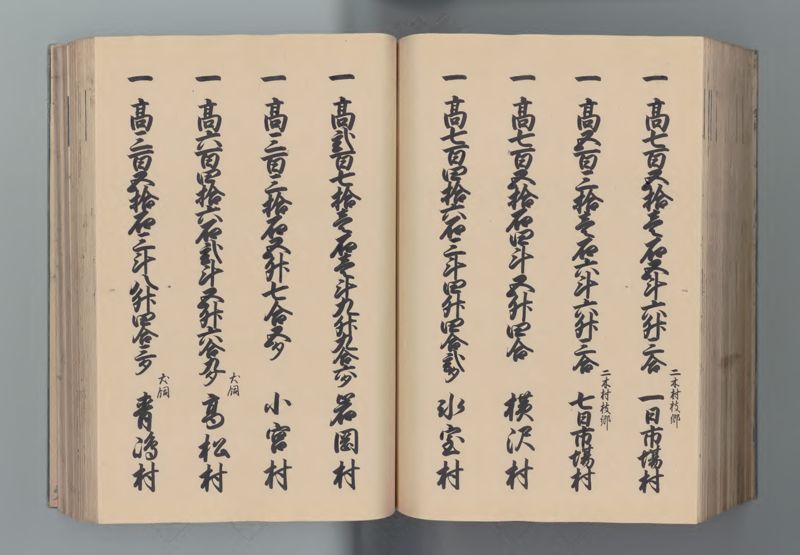 一 高七百五拾壱石五斗六升三合 二木村枝郷 一日市場村
一 高五百三拾壱石六斗六升三合 二木村枝郷 七日市場村
一 高七百五拾石四斗五升四合 横沢村
一 高七百四拾六石三斗四升四合弐夕 氷室村
一 高弐百七拾壱石壱斗九升九合六夕 岩岡村
一 高三百三拾石五升七合五夕 小宮村
一 高六百四拾六石弐斗五升六合九夕 犬飼 高松村
一 高三百五拾石三斗八升四合三夕 犬飼 青嶋村